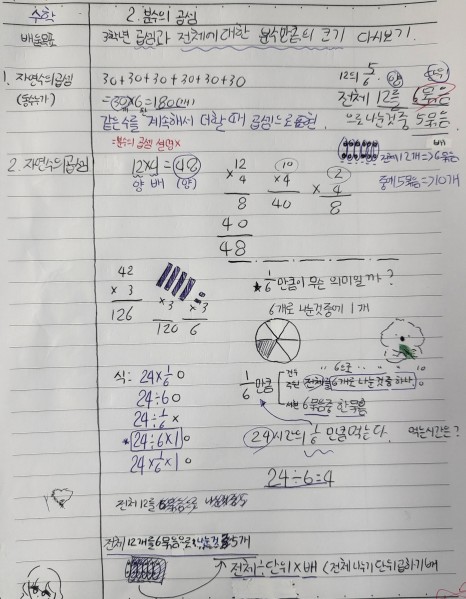 수학
2. 분수의 곱셈
배움목표
3학년 곱셈과 전체에 대한 분수만큼의 크기 다시보기.
1. 자연수의곱셈
(동수누가)
30+30+30+30+30+30
=(30)×6=180(cm)
같은수를 계속해서 더할때 곱셈으로표현
=분수의 곱셈 설명×
12의 5/6
전체 12를 6묶음
으로나눈것중 5묶음
배
전체12개=>6묶음
중에5묶음=>10개
2. 자연수의곱셈
12×4=48
양 배 (양)
12
× 4
8
40
48
10
×4
40
2
× 4
8
42
× 3
126
×3
120
×3
6
★ 1/6 만큼이 무슨 의미일까?
6개로 나눈것중에 1개
식: 24×1/6 O
24÷6 O
24÷1/6 ×
*24÷6×1 O
24×1/6×1 O
1/6 만큼
건우
주원 전체를 6개로 나눈것중하나 O
서현 6묶음중 한묶음
24시간의 1/6 만큼먹는다. 먹는시간은?
24÷6=4
전체12를 6묶음으로 나눈것중5
전체 12개를 6묶음으로 나눈것중 5개
전체÷단위×배 (전체 나누기 단위 곱하기배